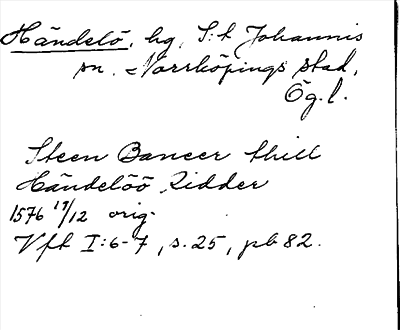 Händelö, hg, S:t Johannis
sn. Norrköpings stad,
Ög.l.
Steen Baneer thill
Händelöö Ridder
1576 17/12 orig.
Vft I:6-7, s. 25, pb 82.